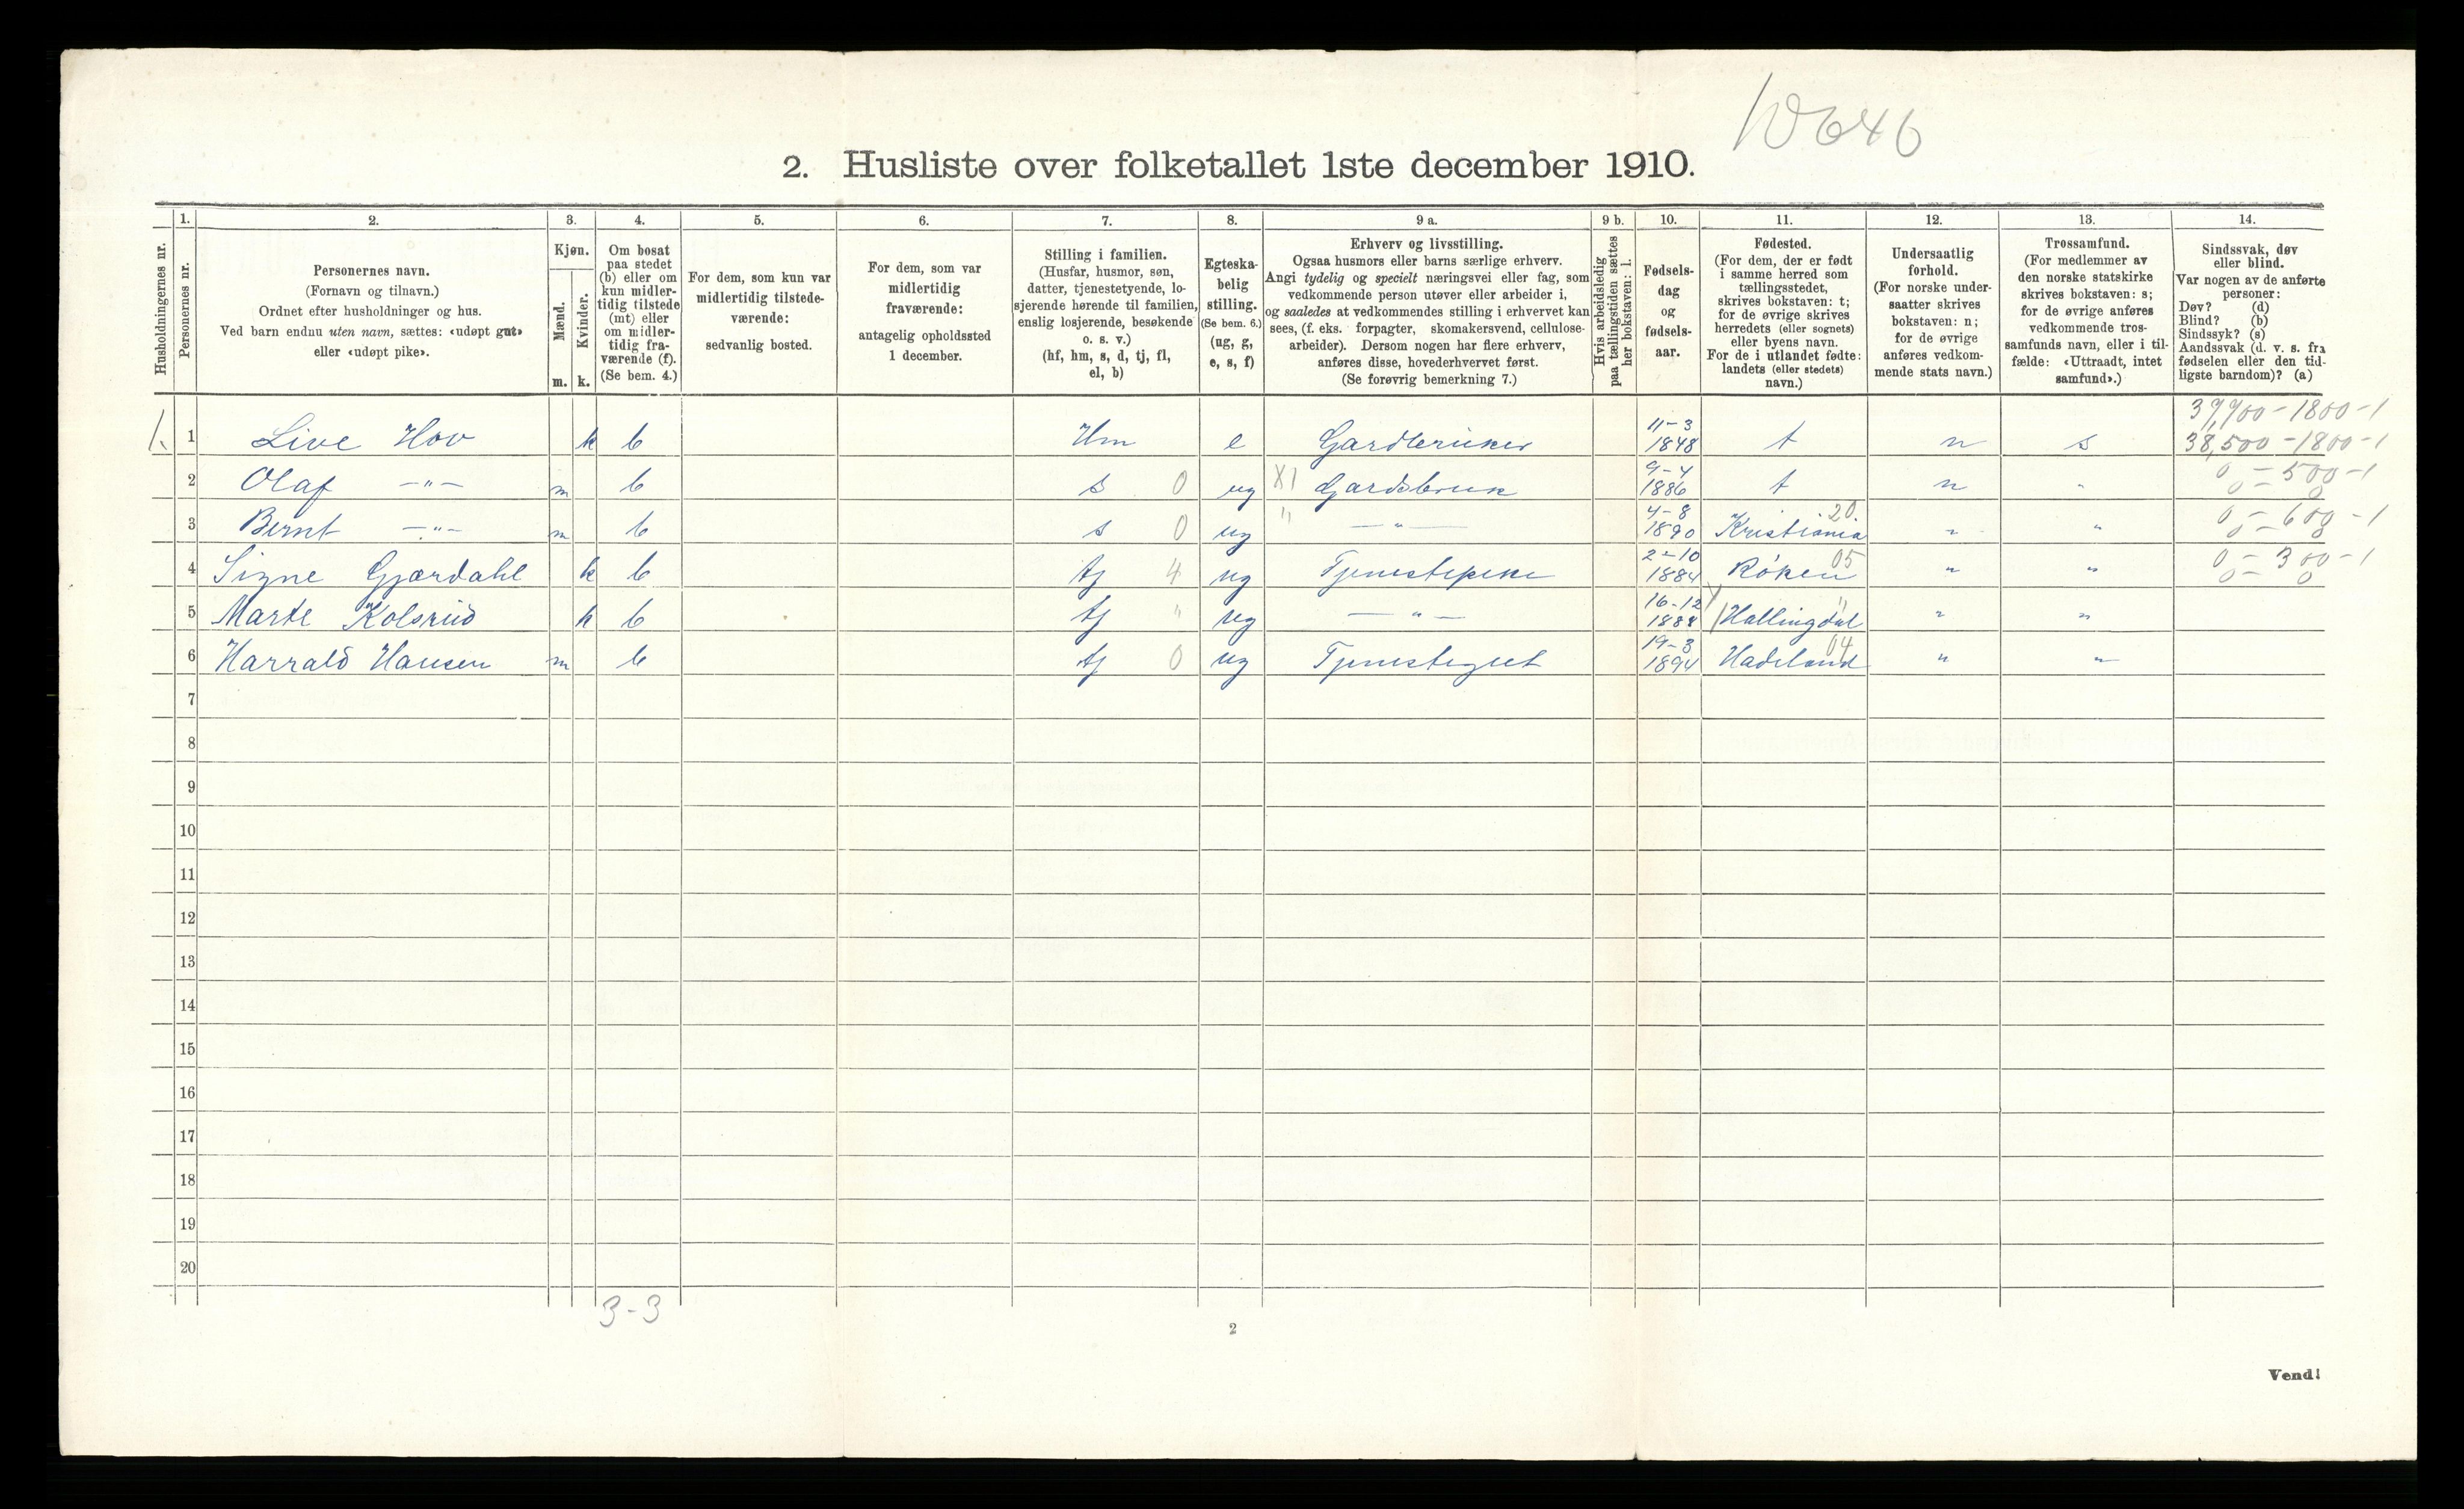 10646
2. Husliste over folketallet 1ste december 1910.
Husholdningernes nr.
1.
Personernes nr.
2.
Personernes navn.
(Fornavn og tilnavn.)
Ordnet efter husholdninger og hus.
Ved barn endnu uten navn, sættes: «udøpt gut»
eller «udøpt pike».
3.
Kjøn.
Mænd.
Kvinder.
m. k.
4.
Om bosat
paa stedet
(b) eller om
kun midler-
tidig tilstede
(mt) eller
om midler-
tidig fra-
værende (f).
(Se bem. 4.)
5.
For dem, som kun var
midlertidig tilstede-
værende:
sedvanlig bosted.
6.
For dem, som var
midlertidig
fraværende:
antagelig opholdssted
1 december.
7.
Stilling i familien.
(Husfar, husmor, søn,
datter, tjenestetyende, lo-
sjerende hørende til familien,
enslig losjerende, besøkende
o. s. v.)
(hf, hm, s, d, tj, fl,
el, b)
8.
Egteska-
belig
stilling.
(Se bem. 6.)
(ug, g,
e, s, f)
9 a.
Erhverv og livsstilling.
Ogsaa husmors eller barns særlige erhverv.
Angi tydelig og specielt næringsvei eller fag, som
vedkommende person utøver eller arbeider i,
og saaledes at vedkommendes stilling i erhvervet kan
sees, (f. eks. forpagter, skomakersvend, cellulose-
arbeider). Dersom nogen har flere erhverv,
anføres disse, hovederhvervet først.
(Se forøvrig bemerkning 7.)
9 b.
Hvis arbeidsledig
paa tællingstiden sættes
her bokstaven: l.
10.
Fødsels-
dag
og
fødsels-
aar.
11.
Fødested.
(For dem, der er født
i samme herred som
tællingsstedet,
skrives bokstaven: t;
for de øvrige skrives
herredets (eller sognets)
eller byens navn.
For de i utlandet fødte:
landets (eller stedets)
navn.)
12.
Undersaatlig
forhold.
(For norske under-
saatter skrives
bokstaven: n;
for de øvrige
anføres vedkom-
mende stats navn.)
13.
Trossamfund.
(For medlemmer av
den norske statskirke
skrives bokstaven: s;
for de øvrige anføres
vedkommende tros-
samfunds navn, eller i til-
fælde: «Uttraadt, intet
samfund».)
14.
Sindssvak, døv
eller blind.
Var nogen av de anførte
personer:
Døv? (d)
Blind? (b)
Sindssyk? (s)
Aandssvak (d. v. s. fra
fødselen eller den tid-
ligste barndom)? (a)
1. 1 Live Hov k b Hm e Gardbruker 11-3 1848 t n s 39,900-1800-1 38,500-1800-1
2 Olaf -"- m b s 0 ug X1 Gardsbruk 9-4 1886 t n " 0-500-1 0-0
3 Bernt -"- m b s 0 ug " -"- 4-8 1890 Kristiania 20 " " 0-600-1 0-0
4 Signe Gjærdahl k b tj 4 ug Tjenestepike 2-10 1884 Røken 05 " " 0-300-1 0-0
5 Marte Kolsrud k b tj " ug -"- 16-12 1888 Hallingdal " " "
6 Harrald Hansen m b tj 0 ug Tjenestegut 19-3 1894 Hadeland 04 " "
7
8
9
10
11
12
13
14
15
16
17
18
19
20
3-3
2
Vend!